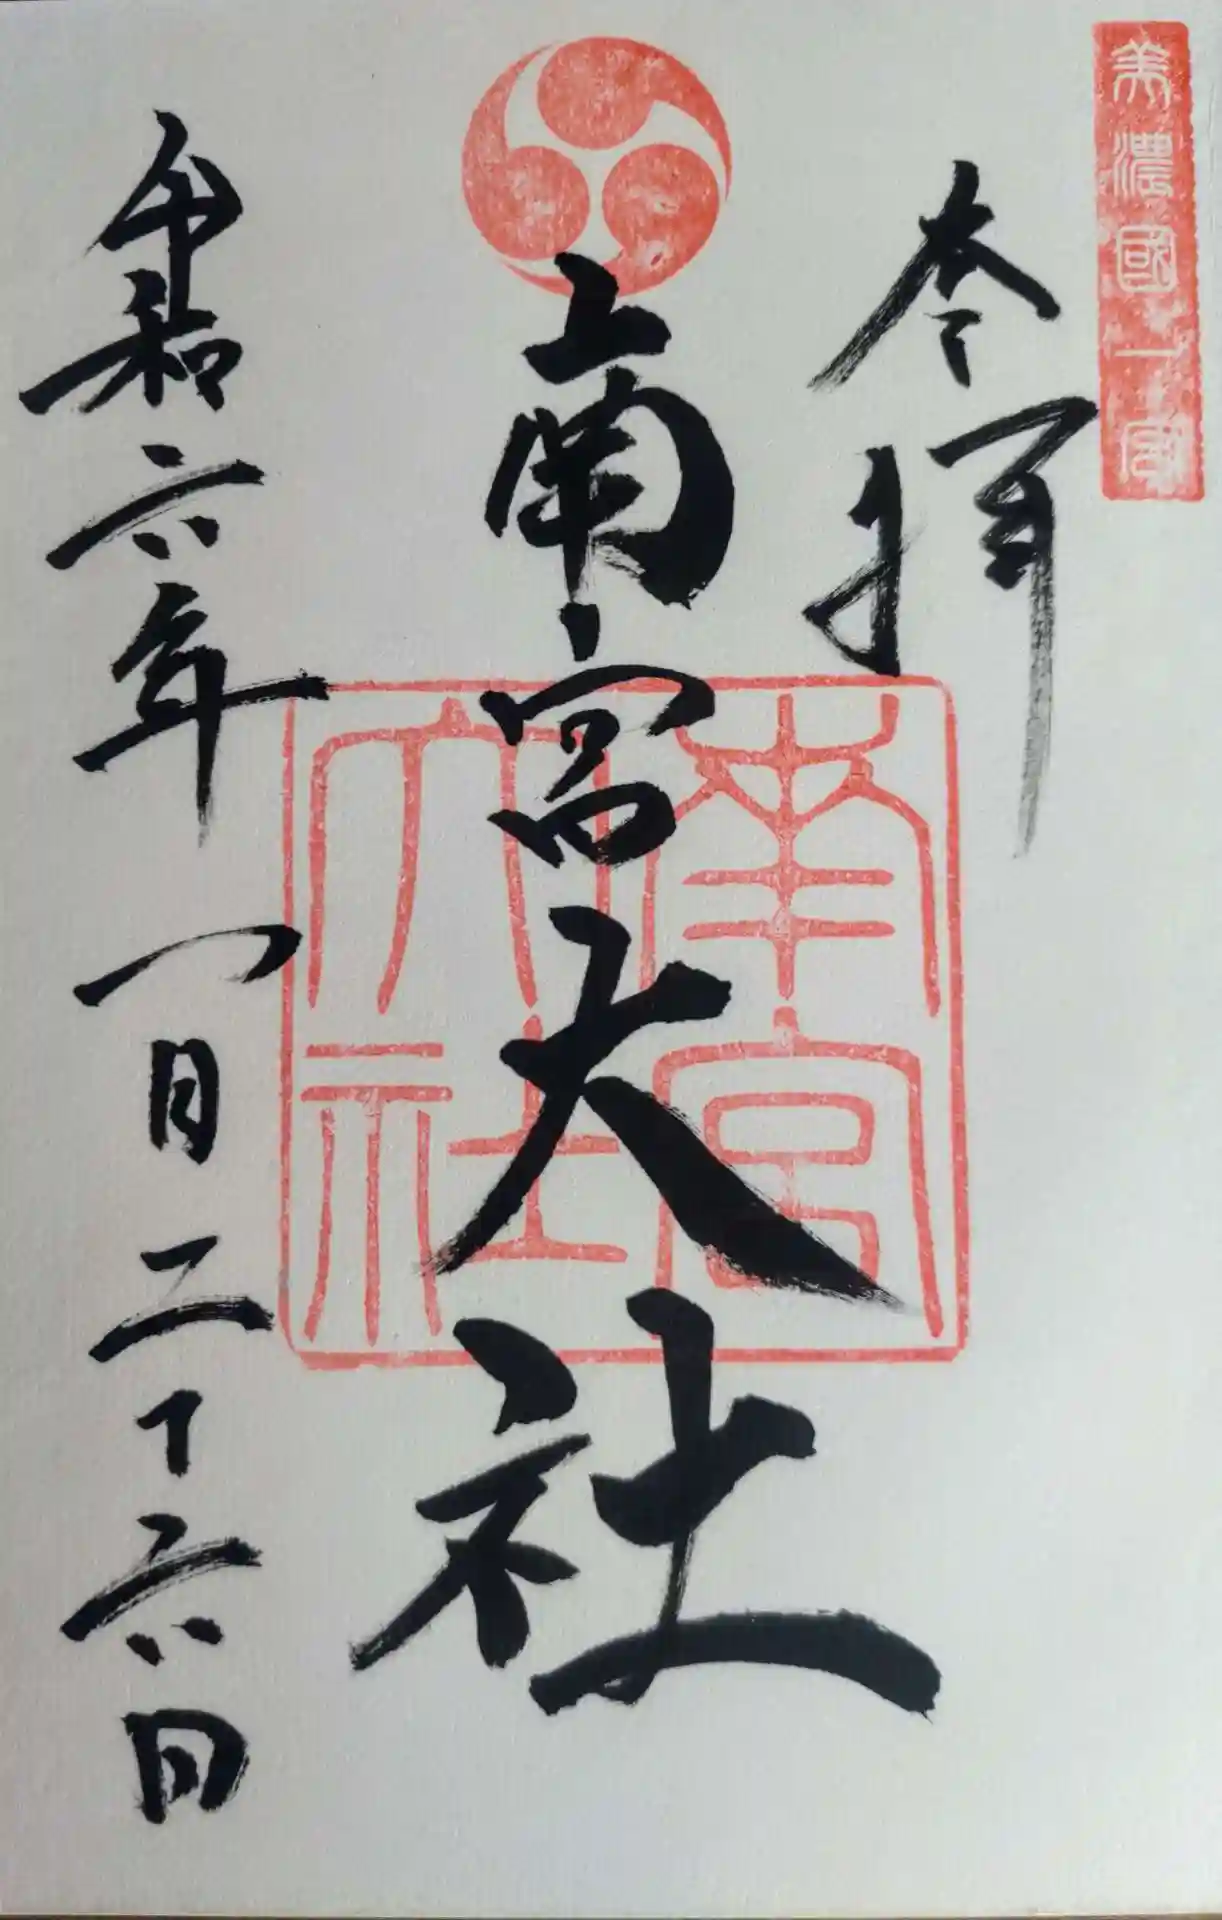 美濃國一宮
奉拝
南宮大社
南宮
大社
令和六年一月二十六日